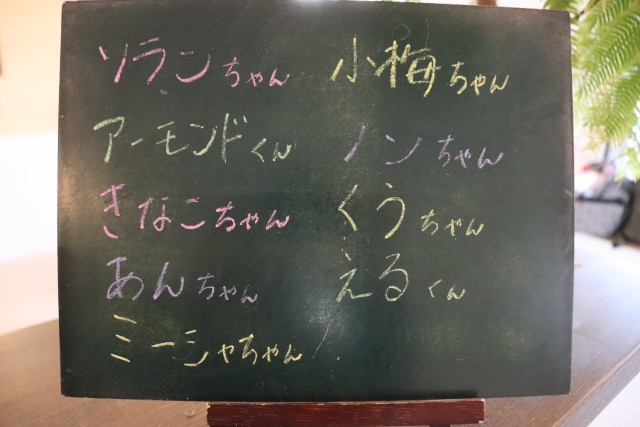 ソランちゃん
アーモンドくん
きなこちゃん
あんちゃん
ミーシャちゃん
小梅ちゃん
ノンちゃん
くうちゃん
えるくん